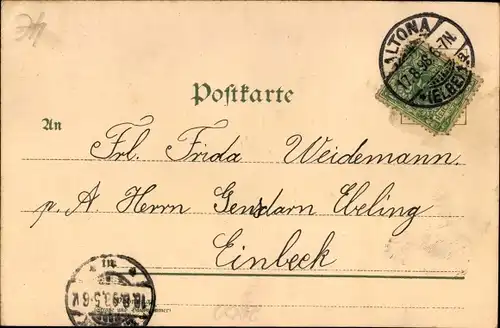 ALTONA
17.8.98.6-7N.
*(ELBE)
Postkarte
An
Frl. Frida Weidemann.
p. A Herrn Gensdarn Ebeling
Einbeck